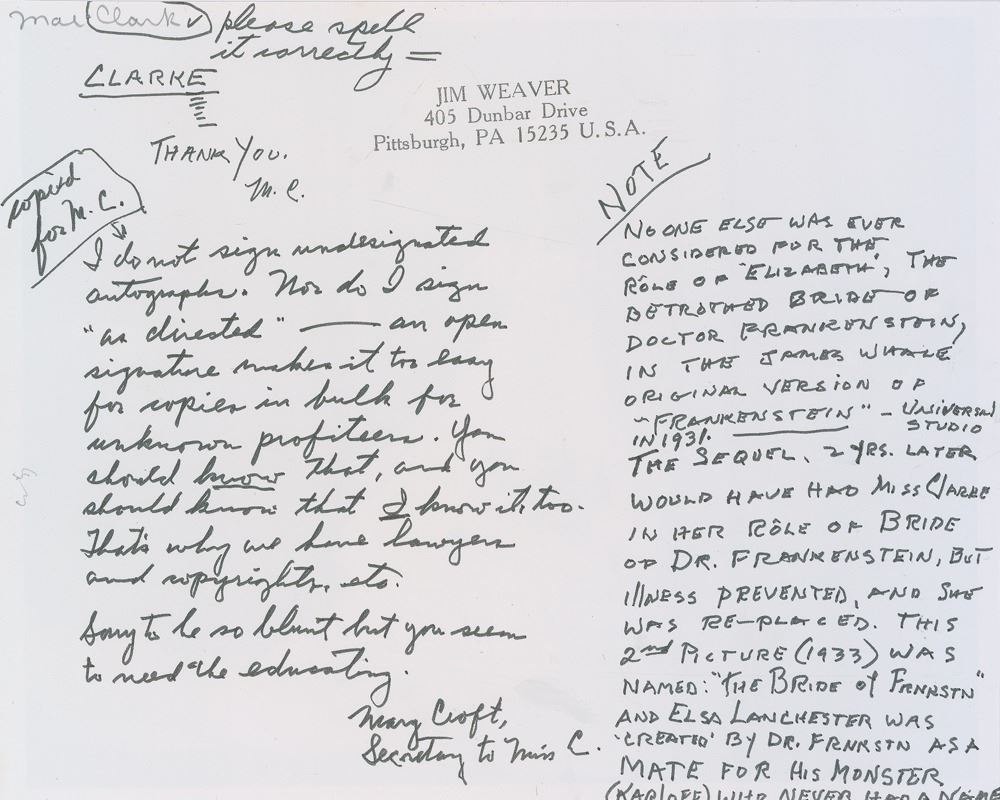 Mae Clark please spell
it correctly =
CLARKE
THANK YOU.
M. C.
JIM WEAVER
405 Dunbar Drive
Pittsburgh, PA 15235 U.S.A.
copied
for M. C.
I do not sign undesignated
autographs. Nor do I sign
"as directed" — an open
signature makes it too easy
for copies in bulk for
unknown profiteers. You
should know that, and you
should know that I know it, too.
That's why we have lawyers
and copyrights, etc.
Sorry to be so blunt but you seem
to need the educating.
Mary Croft,
Secretary to Miss C.
NOTE
NO ONE ELSE WAS EVER
CONSIDERED FOR THE
RÔLE OF 'ELIZABETH', THE
BETROTHED BRIDE OF
DOCTOR FRANKENSTEIN,
IN THE JAMES WHALE
ORIGINAL VERSION OF
"FRANKENSTEIN" – UNIVERSAL
STUDIO
IN 1931.
THE SEQUEL, 2 YRS. LATER
WOULD HAVE HAD MISS CLARKE
IN HER RÔLE OF BRIDE
OF DR. FRANKENSTEIN, BUT
ILLNESS PREVENTED, AND SHE
WAS RE-PLACED. THIS
2nd PICTURE (1933) WAS
NAMED: "THE BRIDE of FRNKSTN"
AND ELSA LANCHESTER WAS
'CREATED' BY DR. FRNKSTN AS A
MATE FOR HIS MONSTER
(KARLOFF) WHO NEVER HAD A NAME